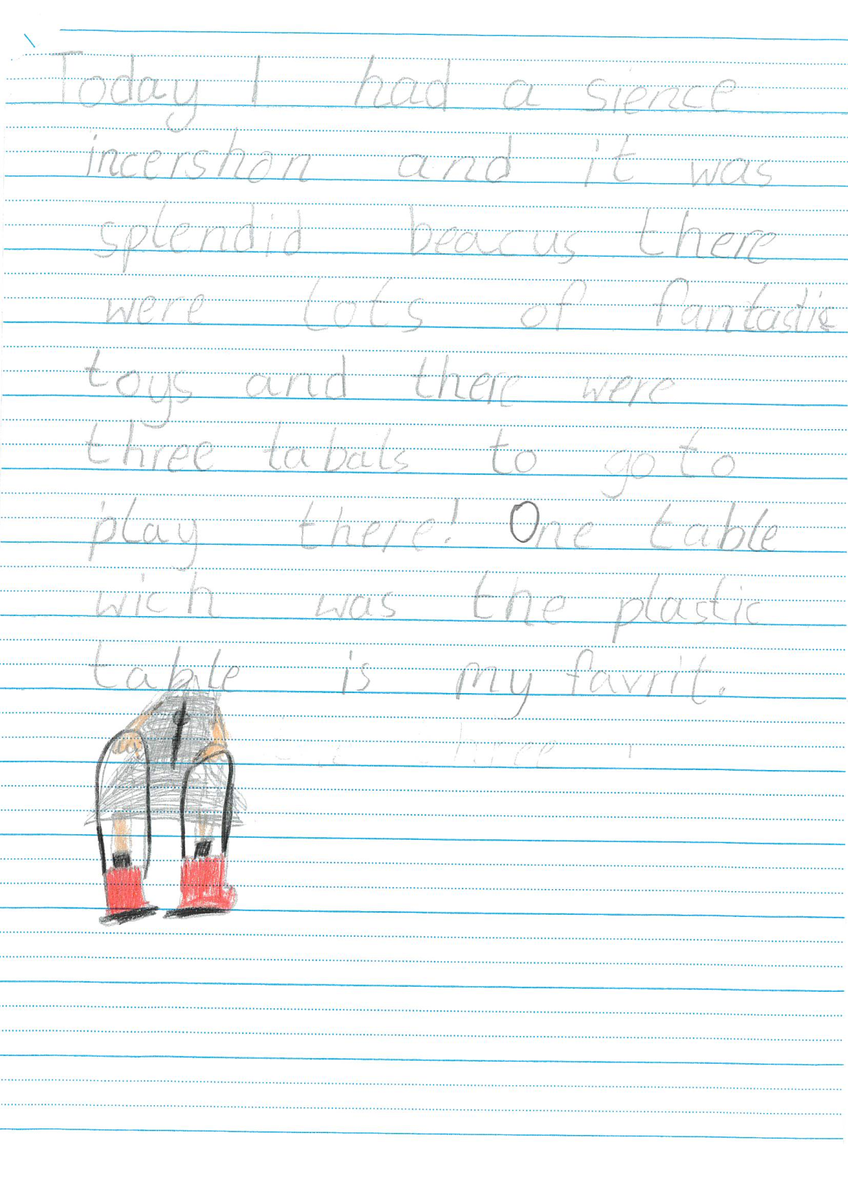 Today I had a sience
incershon and it was
splendid beacus there
were lots of fantastic
toys and there were
three tabals to go to
play there! One table
wich was the plastic
table is my favrit.
three